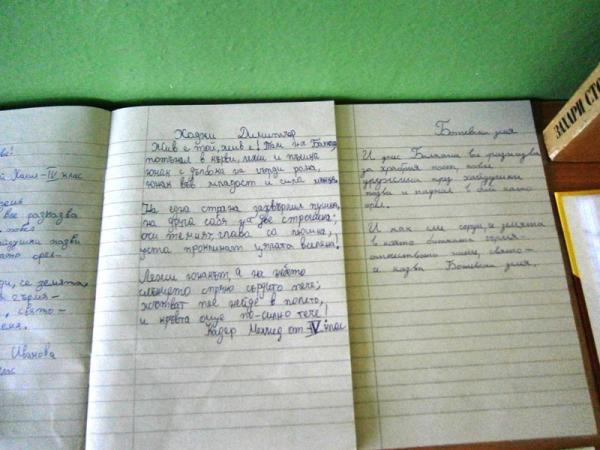 Хаджи Димитър
Жив е той, жив е! Там на Балкана
потънал в кърви, лежи и пъшка
юнак с дълбока на гърди рана,
юнак във младост и сила мъжка.
На една страна захвърлил пушка,
на друга сабя на две строшена;
очи темнеят, глава се люшка,
уста проклинат цялата вселена!
Лежи юнакът, а на небето
слънцето спряно сърдито пече;
жътварка пее нейде в полето,
и кръвта още по-силно тече!
Кадер Мехмед от IV клас
Ботевата земя
И днес Балкана все разказва
за храбрия поет, повел
дружина пред хайдушки
пазви и паднал в бой като
орел.
И как или сърце, и земята
в която битката гърмя
отечеството наше, свято-
се казва Ботевата земя.
IV клас
все разказва
повел
хайдушки пазви
като орел-
се, земята
гърмя-
свято-
земя.
Иванова
клас
ЗАХАРИ СТО